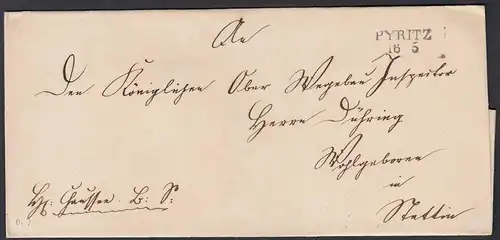 PYRITZ
16 5
An
Den Königlichen Ober Wegebau Inspector
Herrn Dühring
Wohlgeboren
in
Stettin
Chaussee B: S: